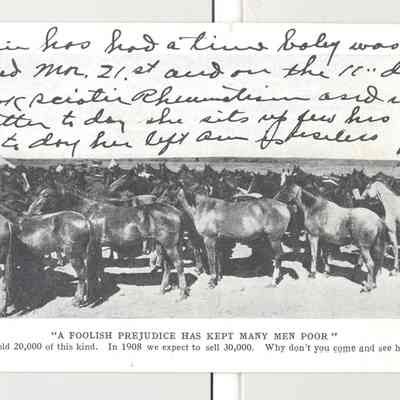 has had a time baby was
Mon. 21.st and on the 11" d
sciatic Rheumatism and
to day she sits up few ho
to day her left arm is useless
"A FOOLISH PREJUDICE HAS KEPT MANY MEN POOR"
old 20,000 of this kind. In 1908 we expect to sell 30,000. Why don't you come and see h